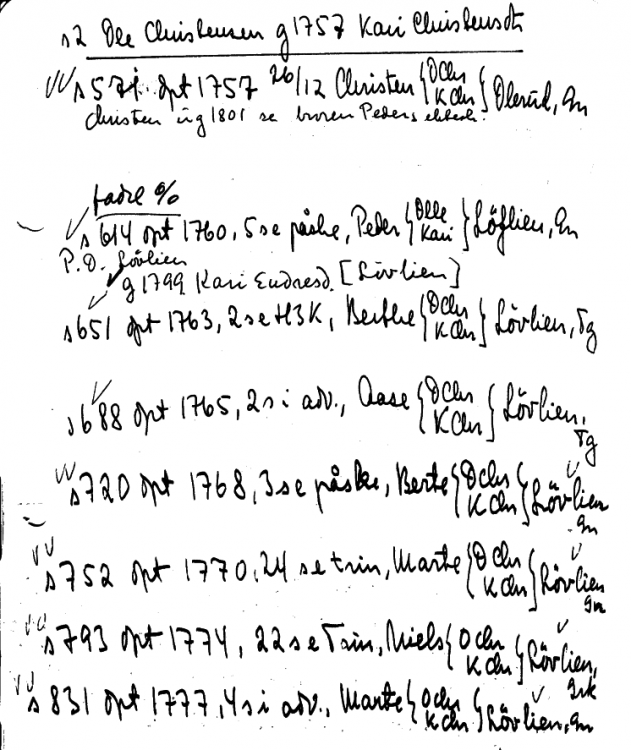 s2 Ole Christensen g 1757 Kari Christensdt
s 571 dpt 1757 26/12 Christen { OChr KChr } Olerud, Gn
Christen ug 1801 se broren Peders
fadre %
s 614 dpt 1760, 5 s e påske, Peder { Olle Kari } Löflien, Gn
P.O. Lövlien
g 1799 Kari Endresd. [Lövlien]
s 651 dpt 1763, 2 s e H3K, Berthe { OChr KChr } Lövlien, Tg
s 688 dpt 1765, 2 s i adv., Aase { OChr KChr } Lövlien, Tg
s 720 dpt 1768, 3 s e påske, Berte { OChr KChr } Lövlien Gn
s 752 dpt 1770, 24 s e trin, Marthe { OChr KChr } Lövlien Gn
s 793 dpt 1774, 22 s e Trin, Niels { OChr KChr } Lövlien, Grk
s 831 dpt 1777, 4 s i adv., Marte { OChr KChr } Lövlien, Gn